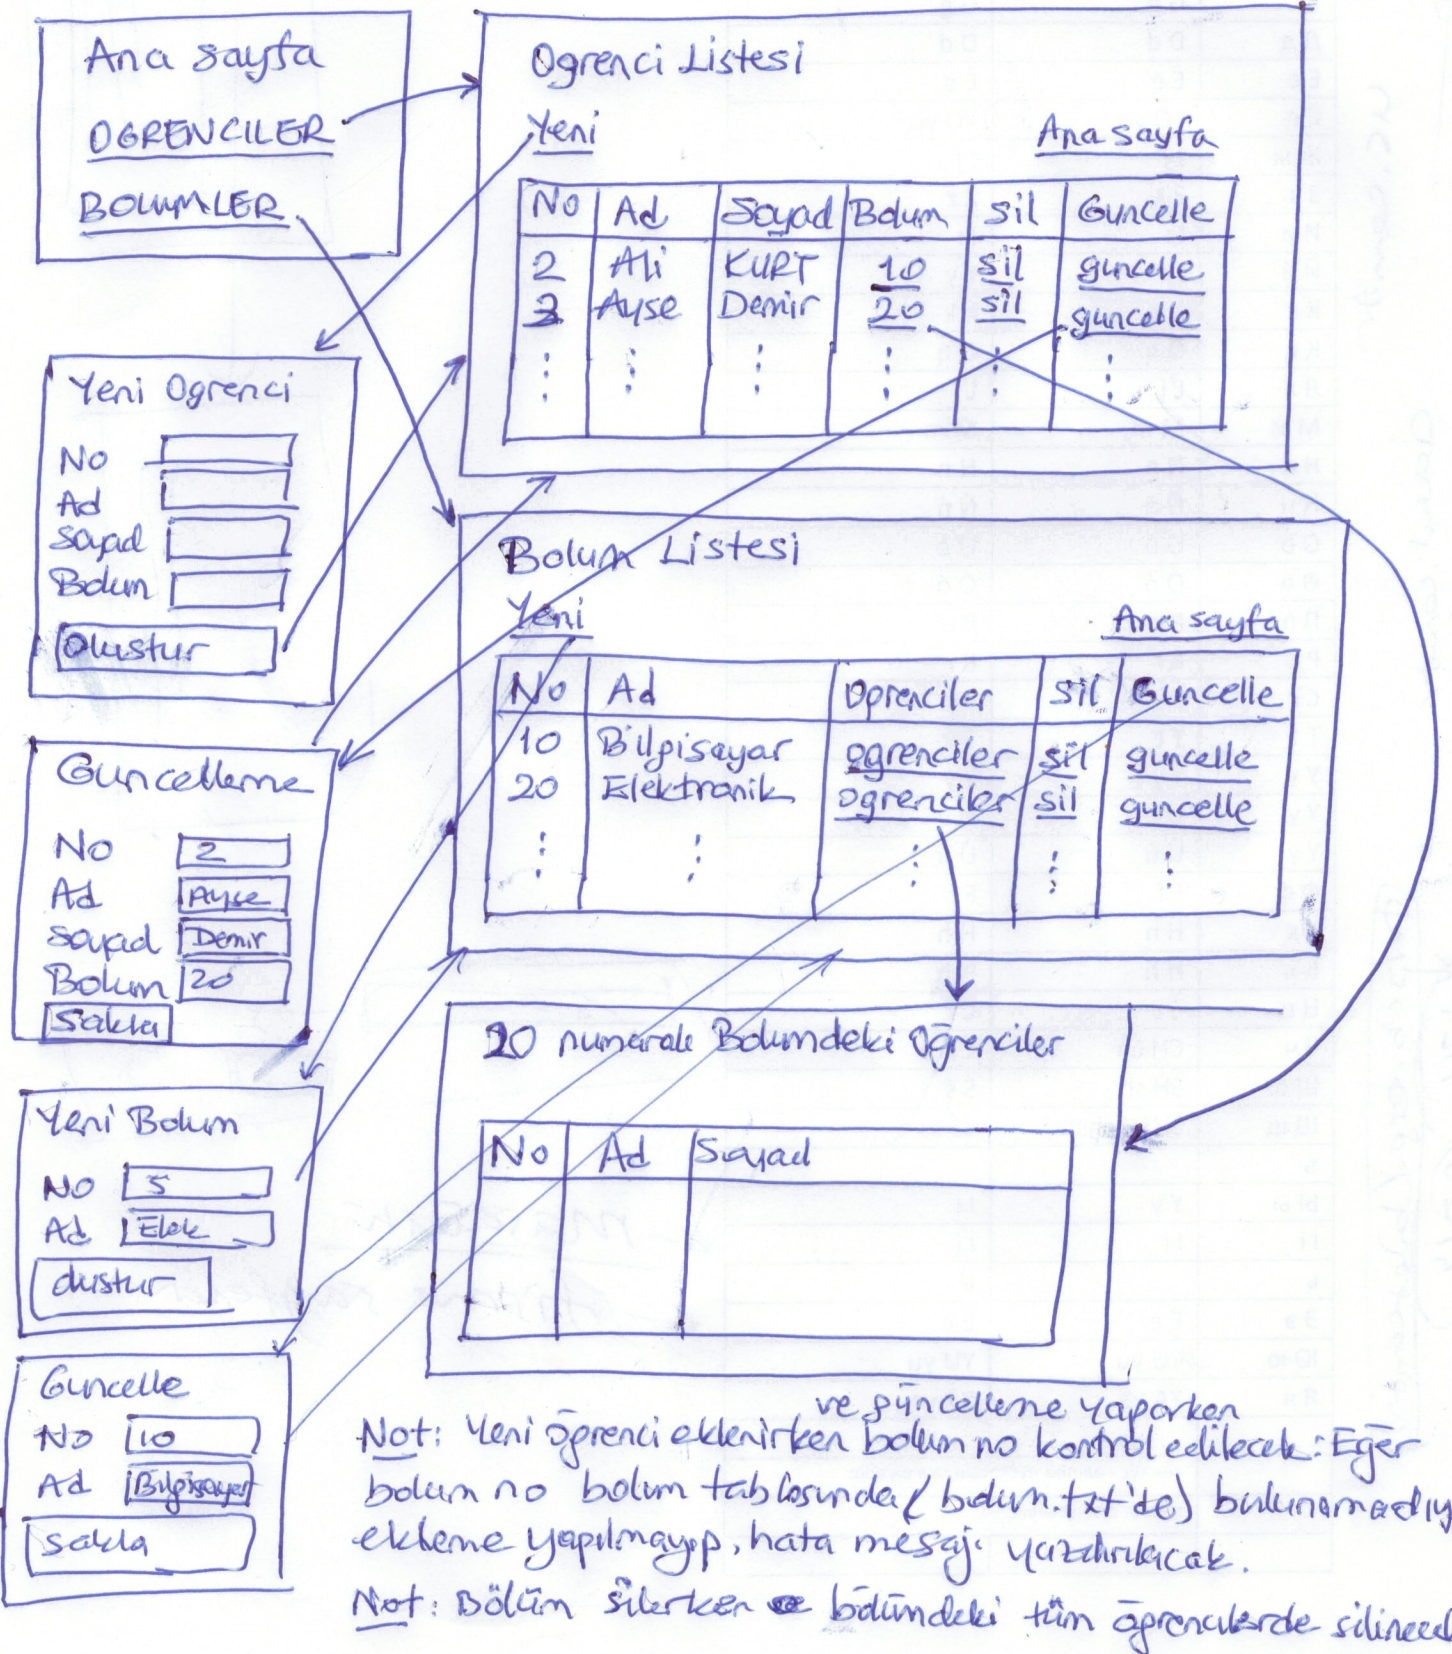 Ana sayfa
OGRENCILER
BOLUMLER
Ogrenci Listesi
Yeni Ana sayfa
No Ad Soyad Bolum sil Guncelle
2 Ali KURT 10 sil guncelle
3 Ayse Demir 20 sil guncelle
Yeni Ogrenci
No
Ad
Soyad
Bolum
Olustur
Bolum Listesi
Yeni Ana sayfa
No Ad Ogrenciler sil Guncelle
10 Bilgisayar ogrenciler sil guncelle
20 Elektronik ogrenciler sil guncelle
Guncelleme
No 2
Ad Ayse
Soyad Demir
Bolum 20
Sakla
20 numaralı Bolumdeki Öğrenciler
No Ad Soyad
Yeni Bolum
No 5
Ad Elek
olustur
Guncelle
No 10
Ad Bilgisayar
sakla
ve güncelleme yaparken
Not: Yeni öğrenci eklenirken bolum no kontrol edilecek: Eğer
bolum no bolum tablosunda (bolum.txt'de) bulunamadıy
ekleme yapılmayıp, hata mesajı yazdırılacak.
Not: Bölüm silerken bölümdeki tüm öğrencilerde silinecek